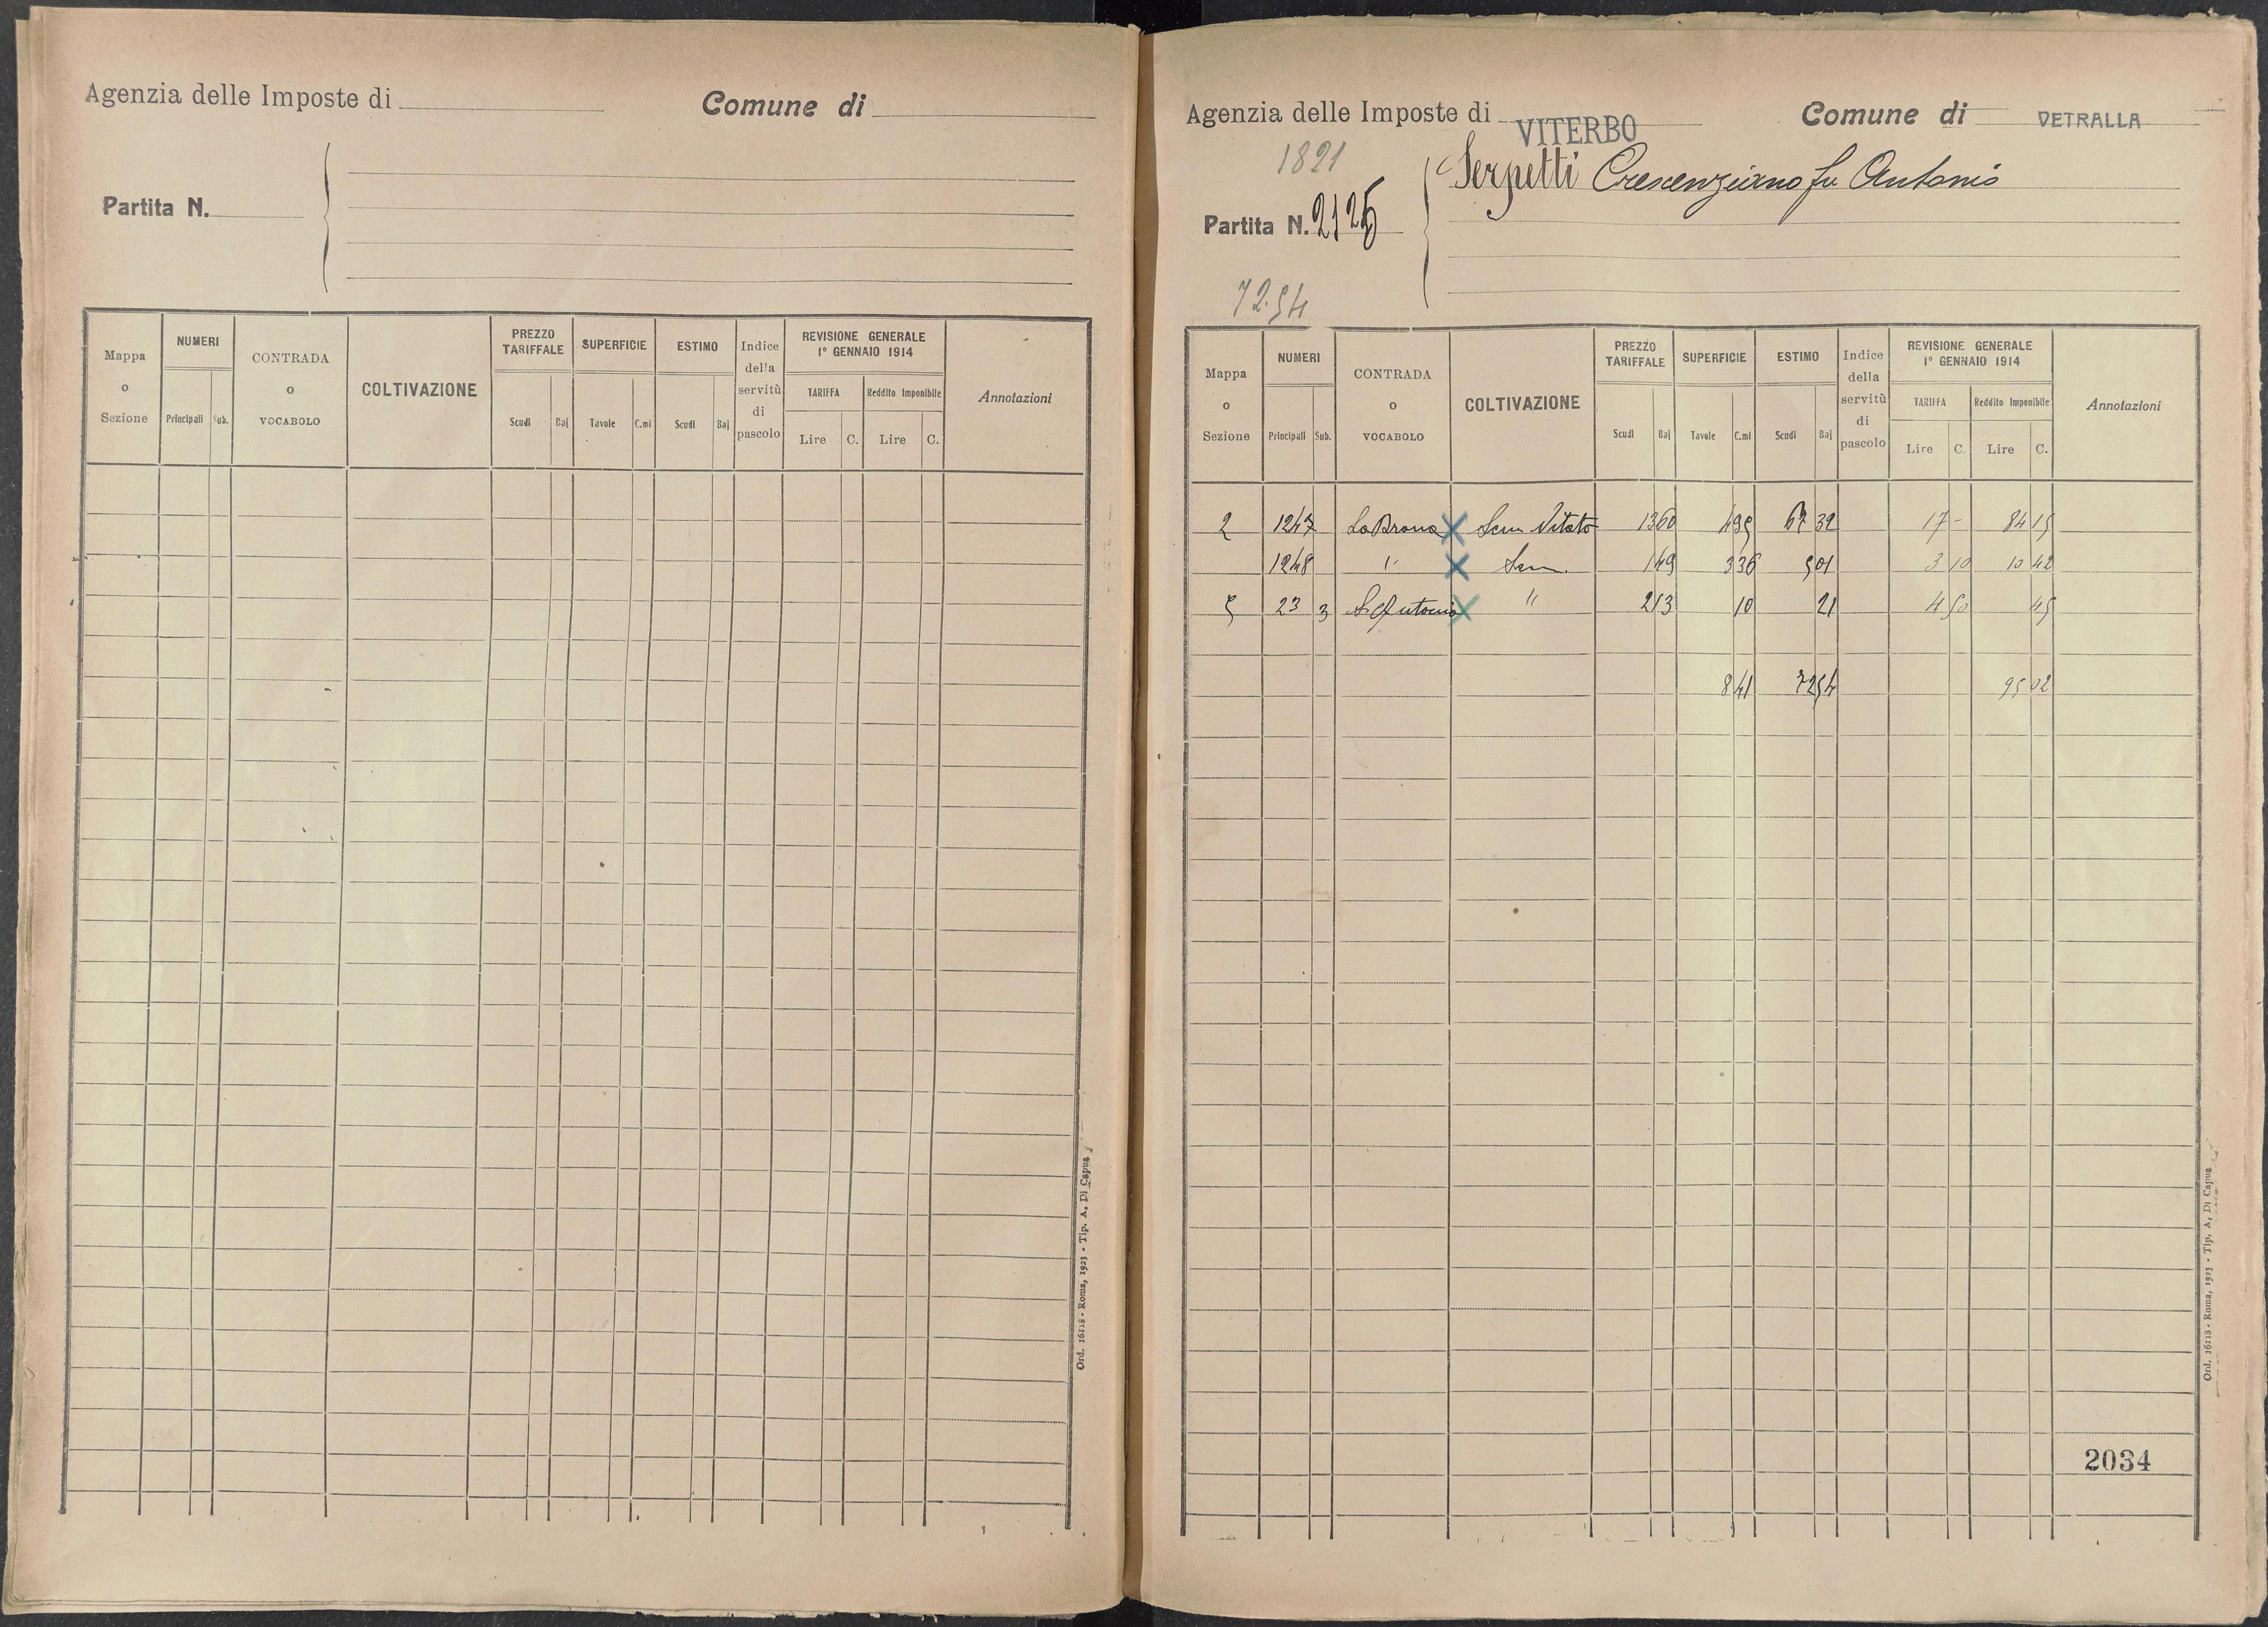 Agenzia delle Imposte di
Comune di
Partita N.
Mappa o Sezione
NUMERI
Principali Sub.
CONTRADA o VOCABOLO
COLTIVAZIONE
PREZZO TARIFFALE
Scudi Baj
SUPERFICIE
Tavole C.mi
ESTIMO
Scudi Baj
Indice della servitù di pascolo
REVISIONE GENERALE
1° GENNAIO 1914
TARIFFA
Lire C.
Reddito Imponibile
Lire C.
Annotazioni
Ord. 16118 - Roma, 1923 - Tip. A. Di Capua
Agenzia delle Imposte di VITERBO
Comune di VETRALLA
1821
Serpetti Crescenziano fu Antonio
Partita N. 2125
72.54
Mappa o Sezione
NUMERI
Principali Sub.
CONTRADA o VOCABOLO
COLTIVAZIONE
PREZZO TARIFFALE
Scudi Baj
SUPERFICIE
Tavole C.mi
ESTIMO
Scudi Baj
Indice della servitù di pascolo
REVISIONE GENERALE
1° GENNAIO 1914
TARIFFA
Lire C.
Reddito Imponibile
Lire C.
Annotazioni
2 1247 Sem Vitato 13 60 4 95 67 32 17 - 84 15
1248 " Sem. 1 49 3 36 5 01 3 10 10 42
5 23 3 S. Antonio " 2 13 10 21 4 50 45
8 41 72 54 95 02
2034
Ord. 16118 - Roma, 1923 - Tip. A. Di Capua